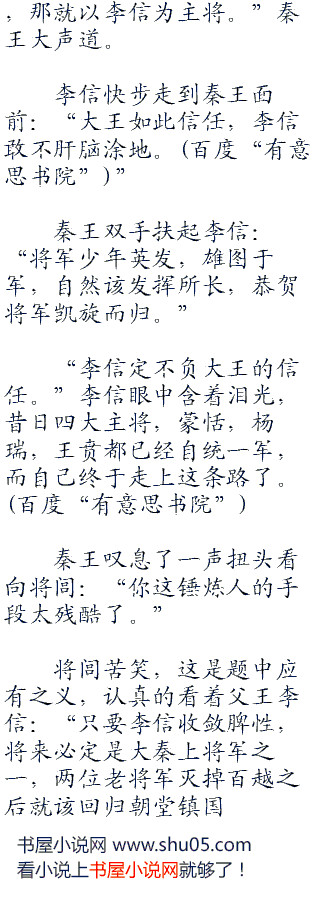 ，那就以李信为主将。”秦
王大声道。
李信快步走到秦王面
前：“大王如此信任，李信
敢不肝脑涂地。(百度“有意
思书院”)”
秦王双手扶起李信：
“将军少年英发，雄图于
军，自然该发挥所长，恭贺
将军凯旋而归。”
“李信定不负大王的信
任。”李信眼中含着泪光，
昔日四大主将，蒙恬，杨
瑞，王贲都已经自统一军，
而自己终于走上这条路了。
(百度“有意思书院”)
秦王叹息了一声扭头看
向将闾：“你这锤炼人的手
段太残酷了。”
将闾苦笑，这是题中应
有之义，认真的看着父王李
信：“只要李信收敛脾性，
将来必定是大秦上将军之
一，两位老将军灭掉百越之
后就该回归朝堂镇国
书屋小说网 www.shu05.com
看小说上书屋小说网就够了！